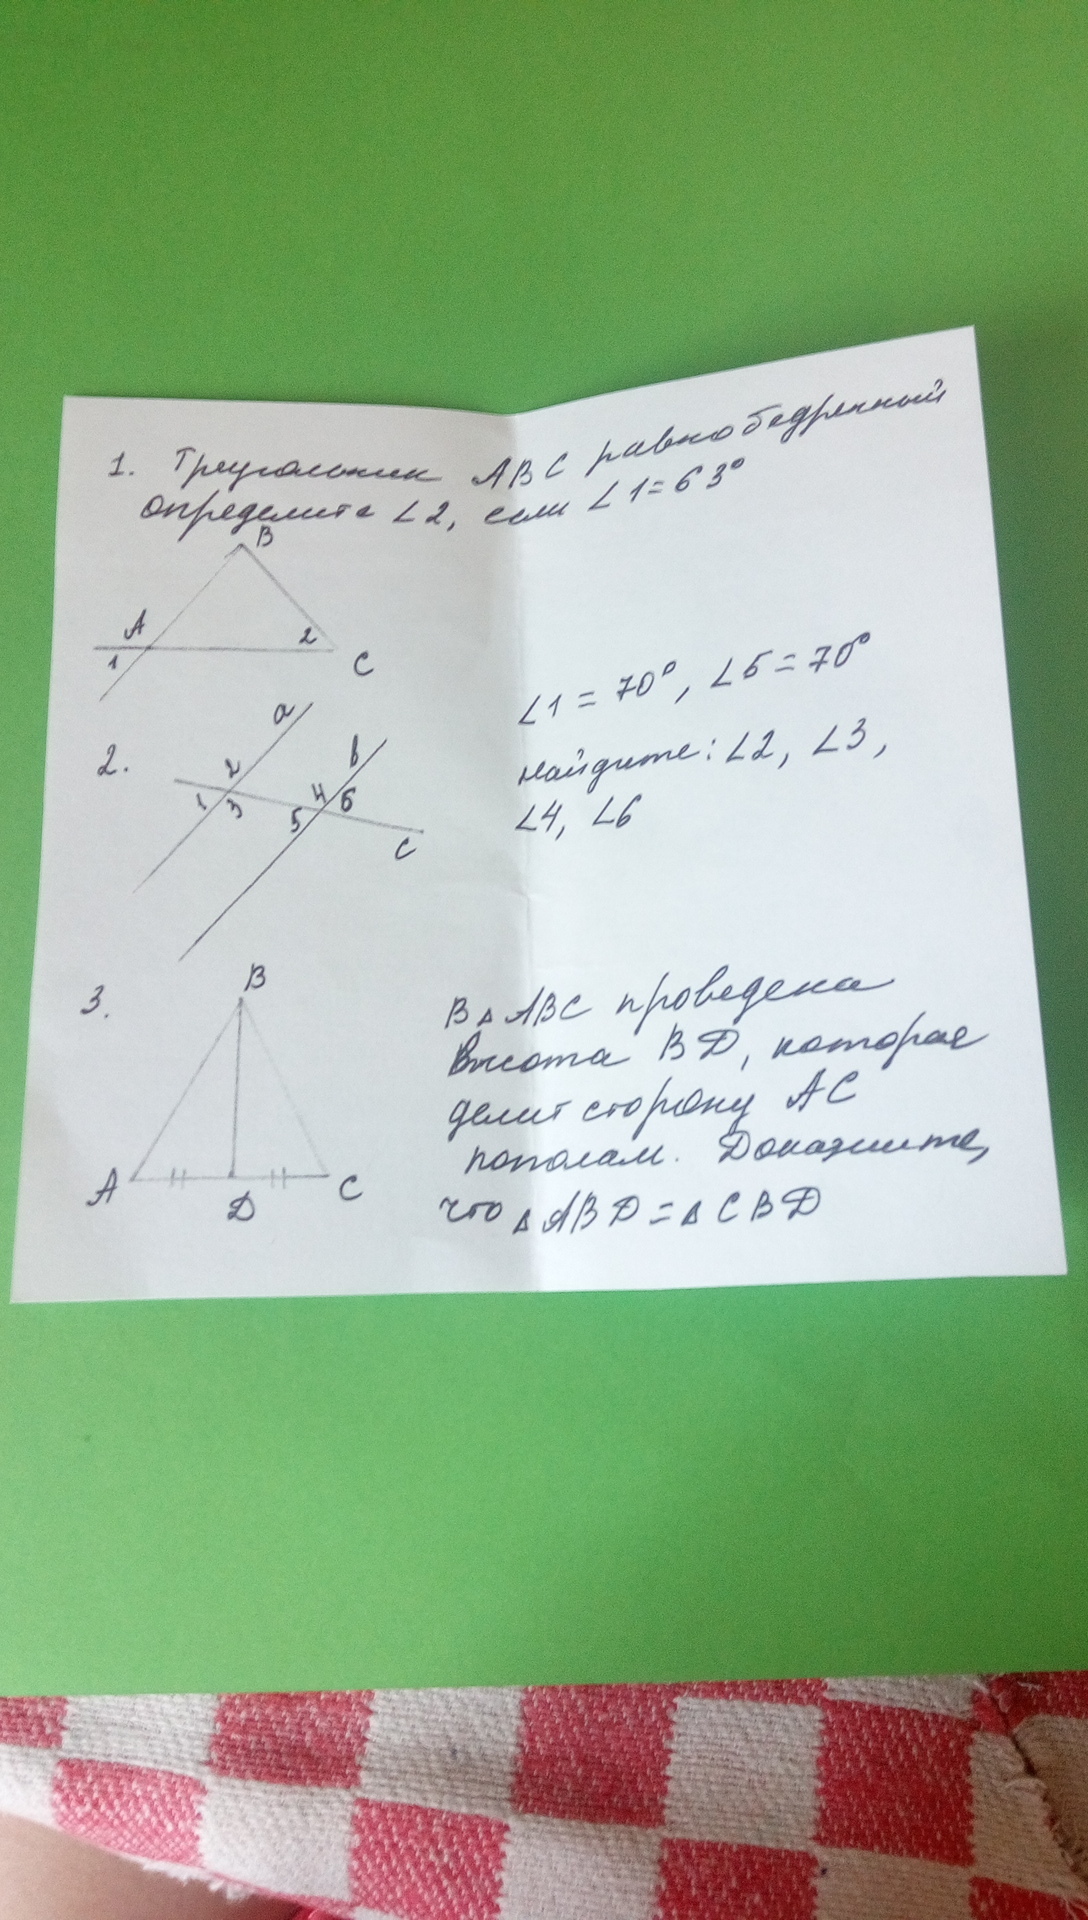 1. Треугольник ABC равнобедренный
определите ∠2, если ∠1=63°
B
A
2
1
C
a
2.
b
2
1
3
4
6
5
C
∠1 = 70°, ∠5 = 70°
найдите: ∠2, ∠3,
∠4, ∠6
3.
B
A
D
C
В △ABC проведена
высота BD, которая
делит сторону AC
пополам. Докажите,
что △ABD = △CBD